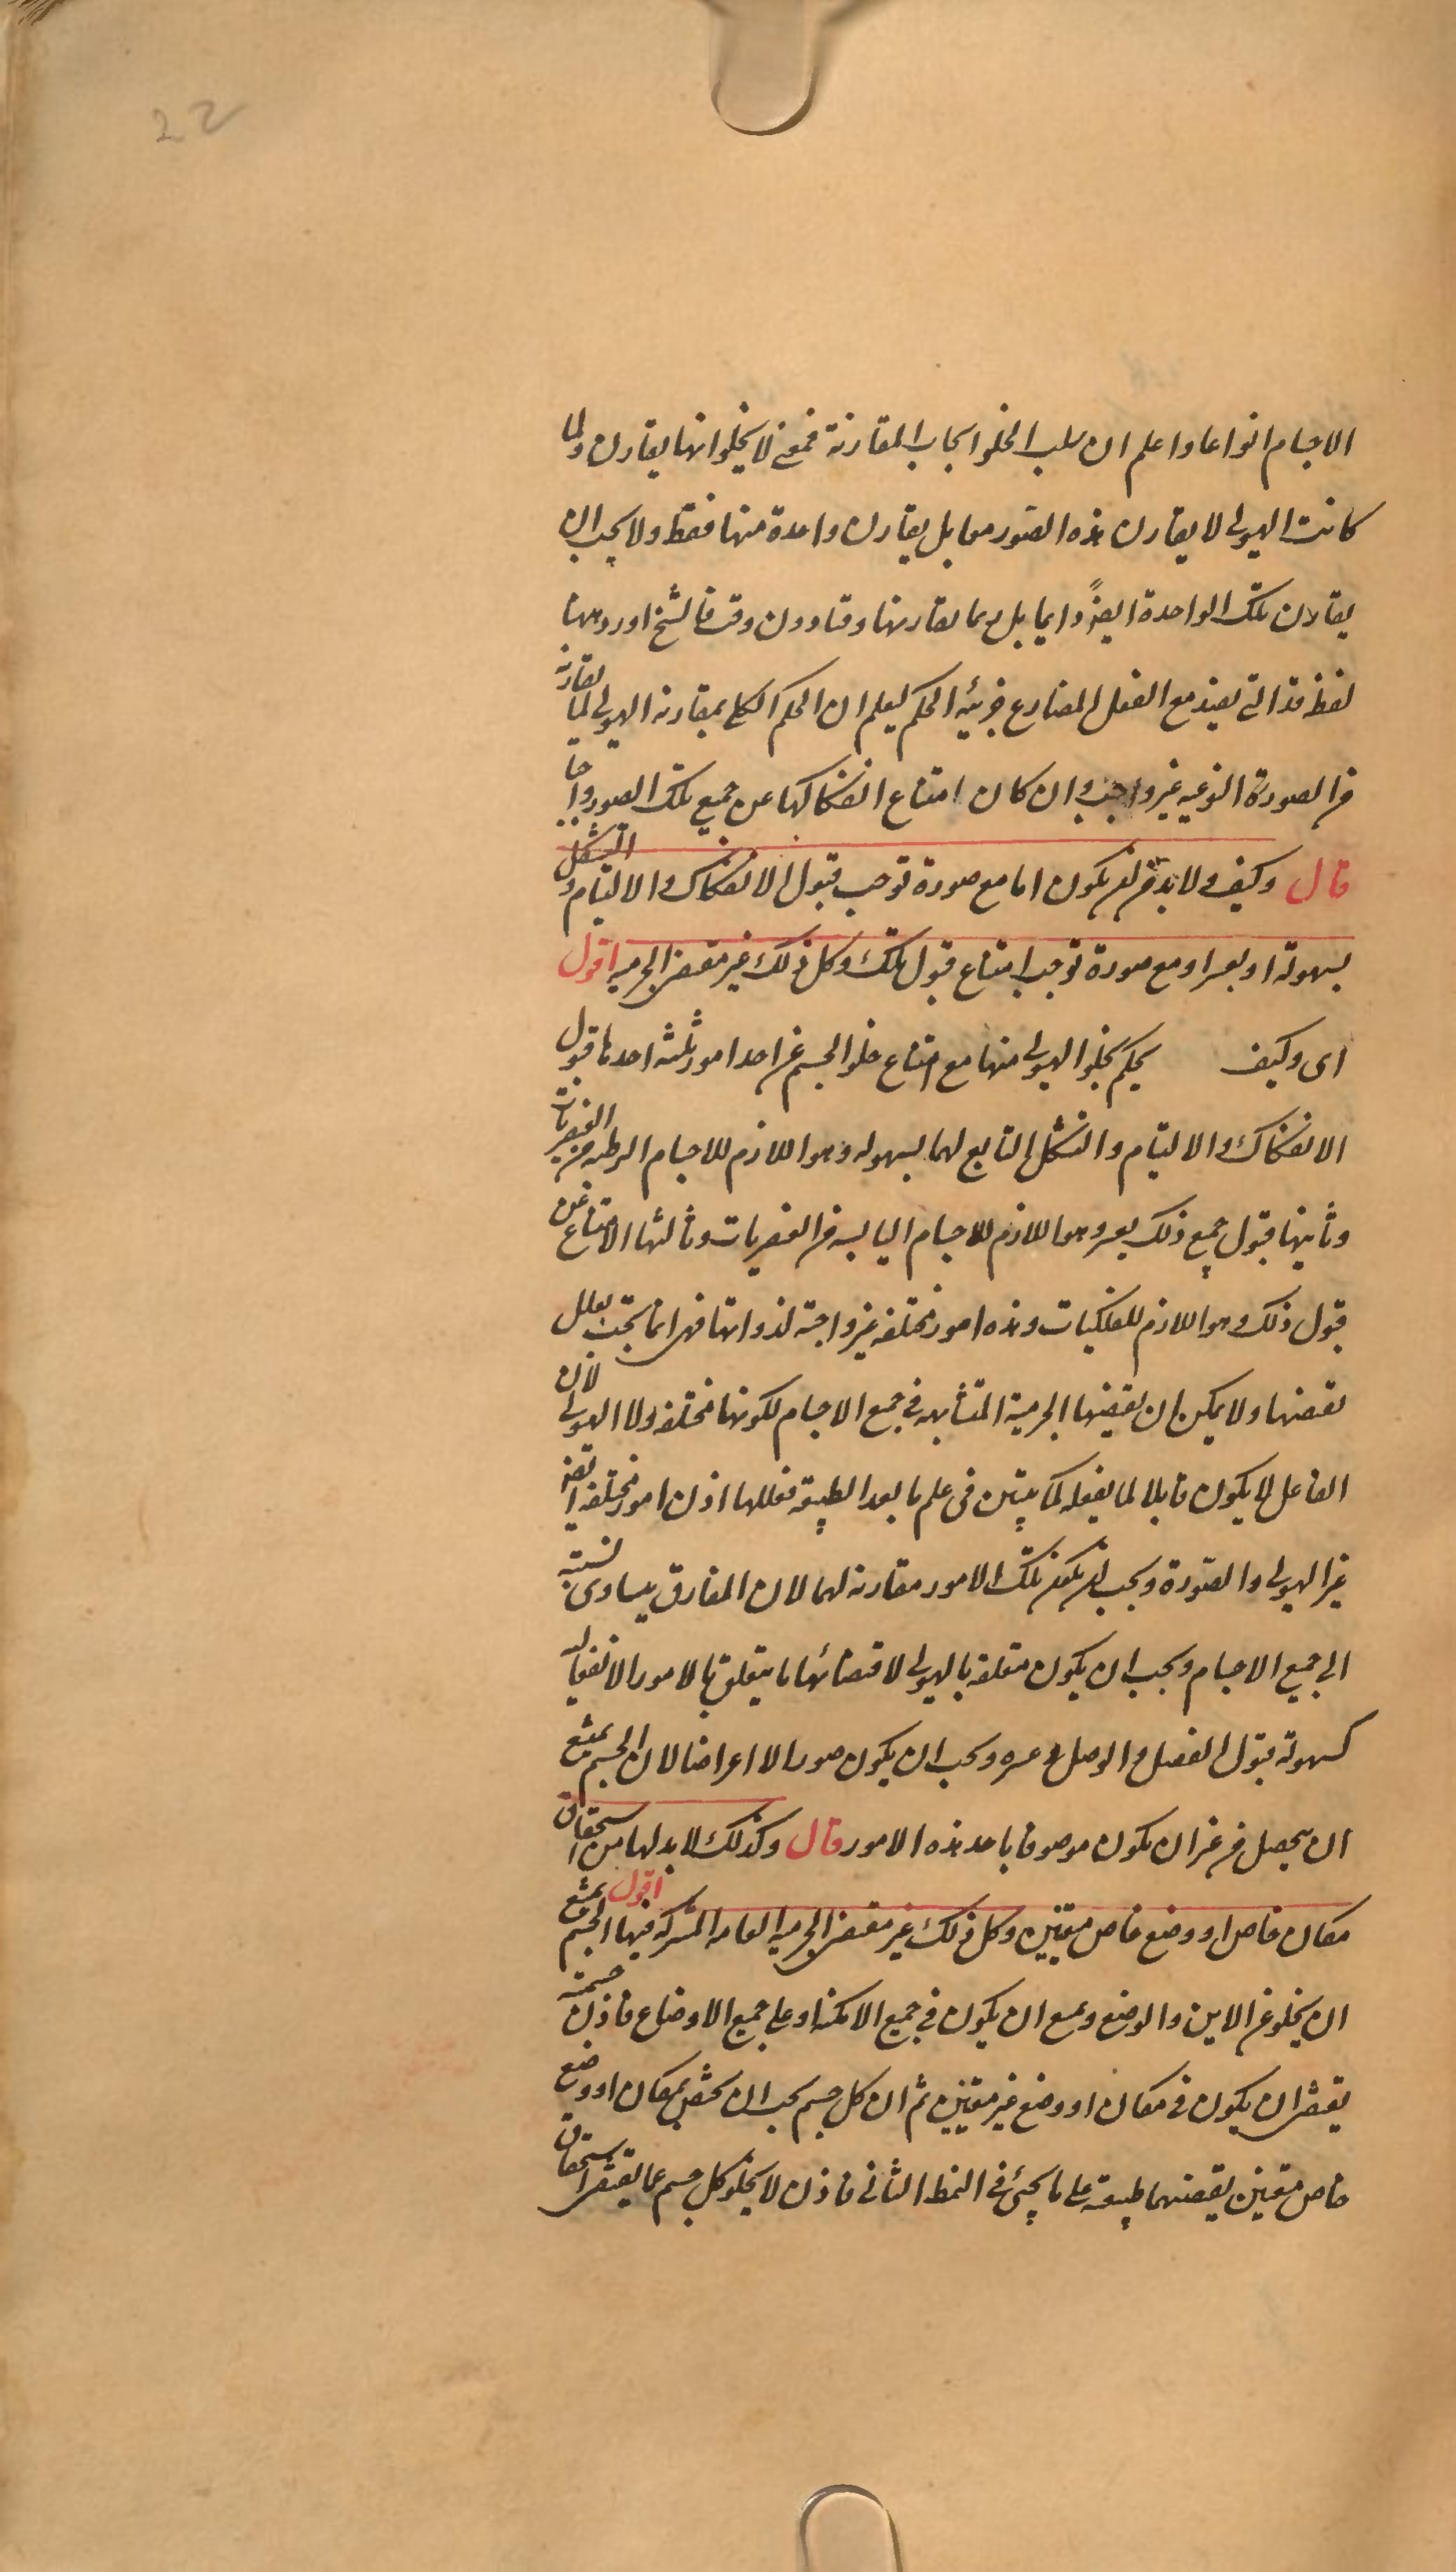 22
الاجسام انواعا واعلم ان سلب الخلو ايجاب المقارنة فمعنى لا يخلو انها يقارن ولما
كانت الهيولى لا يقارن هذه الصور معا بل يقارن واحدة منها فقط ولا يجب ان
يقارن تلك الواحدة ايضاً دايما بل ربما يقارنها وقتا دون وقت فالشيخ اورد ههنا
لفظة قد التى يفيد مع الفعل المضارع جزئية الحكم ليعلم ان الحكم الكلى بمقارنة الهيولى لما يقارنه
من الصورة النوعيه غير واجب وان كان امتناع انفكاكها عن جميع تلك الصور واجبا
قال وكيف ولا بد من ان يكون اما مع صورة توجب قبول الانفكاك والالتيام والتشكل
بسهولة او بعسر او مع صورة توجب امتناع قبول تلك وكل ذلك غير مقتضى الجرميه اقول
اى وكيف يحكم بخلو الهيولى منها مع امتناع خلو الجسم عن احد امور ثلثه احدها قبول
الانفكاك والالتيام والتشكل التابع لهما بسهوله وهو اللازم للاجسام الرطبه من العنصريات
وثانيها قبول جميع ذلك بعسر وهو اللازم للاجسام اليابسه من العنصريات وثالثها الامتناع عن
قبول ذلك وهو اللازم للفلكيات وهذه امور مختلفه غير واجبة لذواتها فهى انما تجب بعلل
تقتضيها ولا يمكن ان يقتضيها الجرمية المتشابهه فى جميع الاجسام لكونها مختلفه ولا الهيولى لان
الفاعل لا يكون قابلا لما يفعله لما يتبين فى علم ما بعد الطبيعة فعللها اذن امور مختلفه ايضا
غير الهيولى والصورة ويجب ان يكون تلك الامور مقارنة لهما لان المفارق يتساوى نسبته
الى جميع الاجسام ويجب ان يكون متعلقة بالهيولى لاقتضائها ما يتعلق بالامور الانفعاليه
كسهولة قبول الفصل والوصل وعسره ويجب ان يكون صورا لا اعراضا لان الجسم يمتنع
ان يحصل من غير ان يكون موصوفا باحد هذه الامور قال وكذلك لا بد لها من استحقاق
مكان خاص او وضع خاص متعينين وكل ذلك غير مقتضى الجرميه العامه المشركه فيها اقول الجسم يمتنع
ان يخلو عن الاين والوضع ويمتنع ان يكون فى جميع الامكنه او على جميع الاوضاع فاذن جسميته
يقتضى ان يكون فى مكان او وضع غير متعينين ثم ان كل جسم يجب ان يختص بمكان او وضع
خاص متعينين يقتضيهما طبيعته على ما يجئ فى النمط الثانى فاذن لا يخلو كل جسم عما يقتضى استحقاق